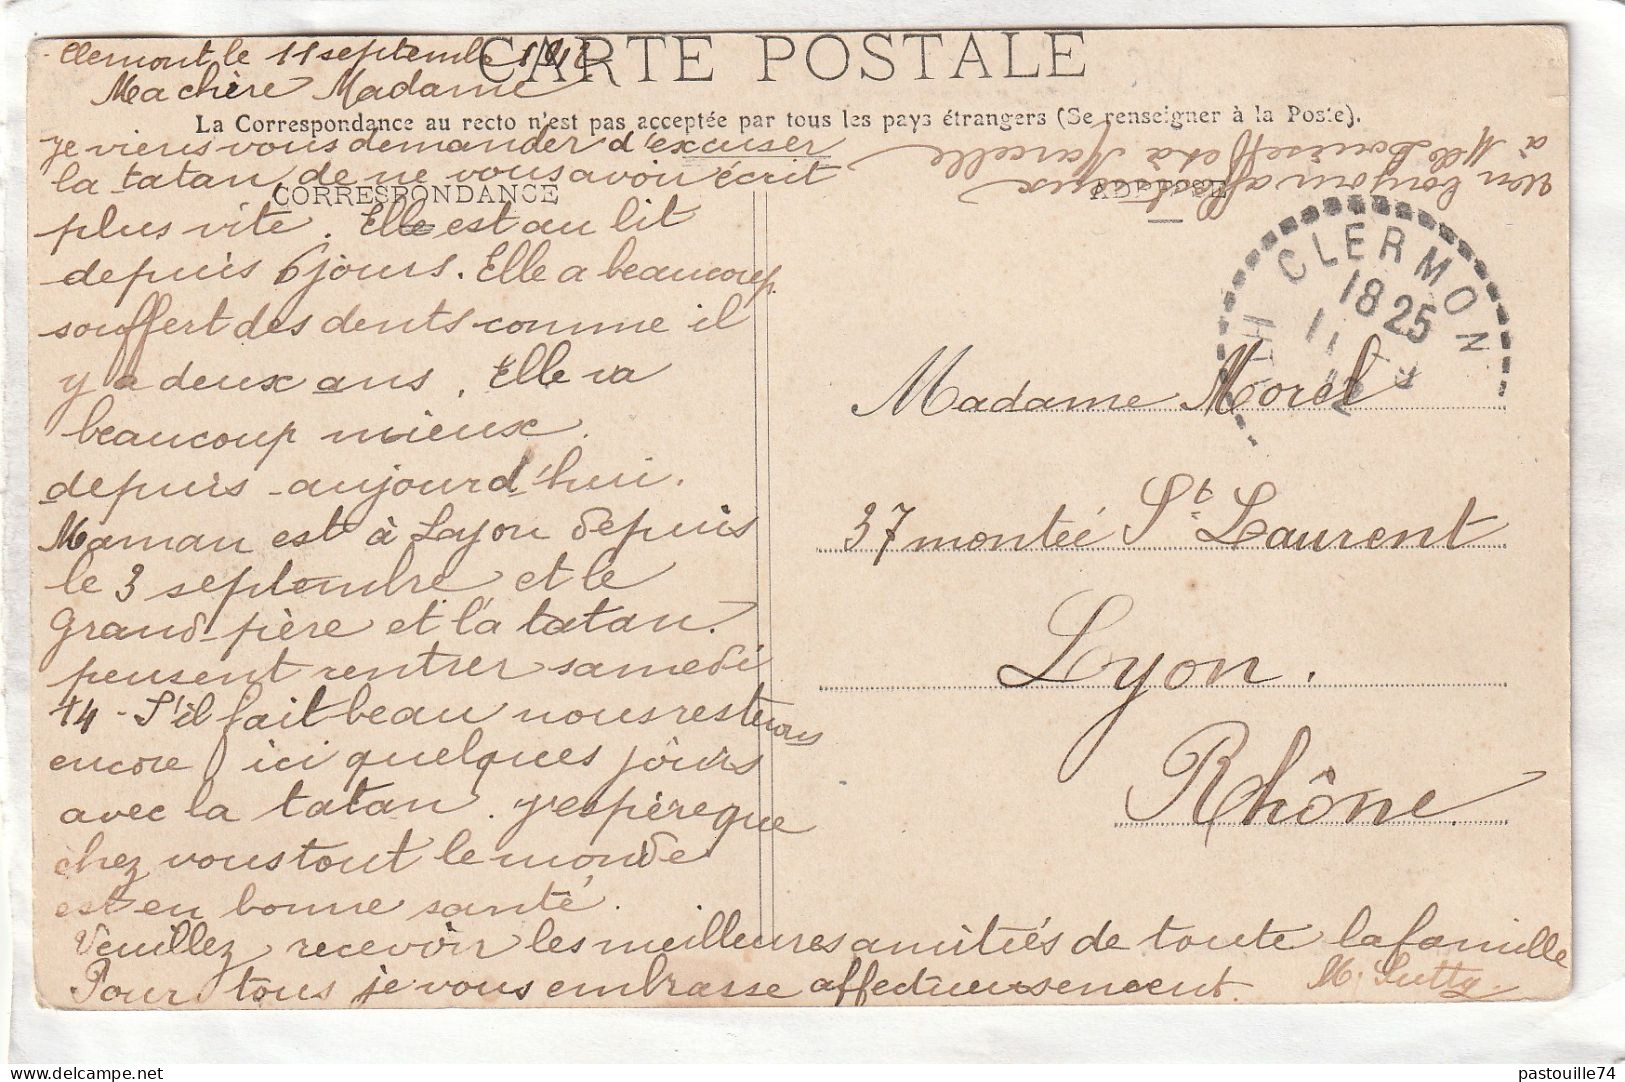 Clemont le 11 septembre 1912
CARTE POSTALE
Ma chère Madame
La Correspondance au recto n'est pas acceptée par tous les pays étrangers (Se renseigner à la Poste).
Je viens vous demander d'excuser
la tatan de ne vous avoir écrit
CORRESPONDANCE
plus vite. Elle est au lit
depuis 6 jours. Elle a beaucoup
souffert des dents comme il
y a deux ans. Elle va
beaucoup mieux.
depuis aujourd'hui.
Maman est à Layon depuis
le 3 septembre et le
Grand-père et la tatan.
pensent rentrer samedi
14 - S'il fait beau nous resterons
encore ici quelques jours
avec la tatan. J'espère que
chez vous tout le monde
est en bonne santé.
Veuillez recevoir les meilleures amitiés de toute la famille
Pour tous je vous embrasse affectueusement. M. Sutty.
Un bonjour affectueux
à Mlle et à Marcelle
ADRESSE
CLERMONT
18 25
11
Madame Morel
37 montée St Laurent
Lyon.
Rhône
pastouille74